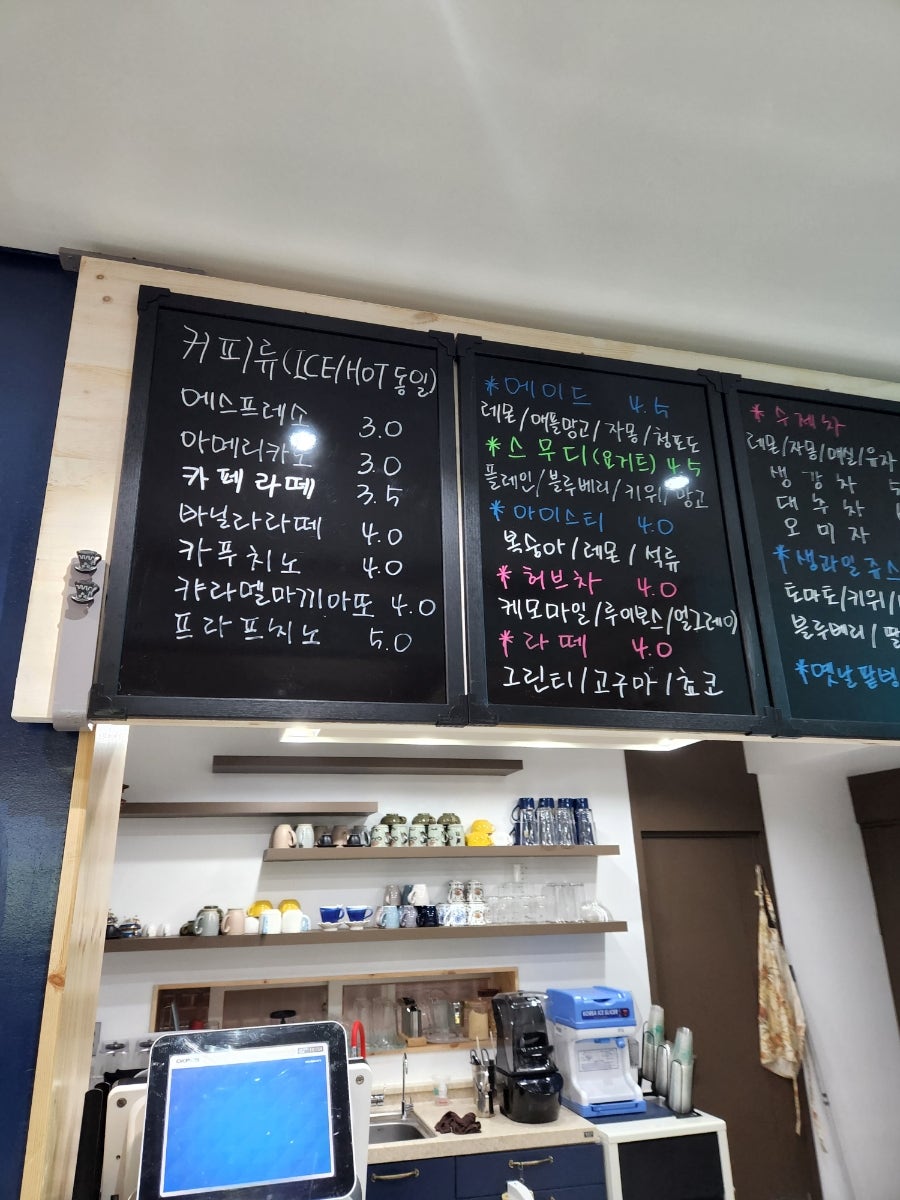 커피류(ICE/HOT 동일)
에스프레소 3.0
아메리카노 3.0
카페라떼 3.5
바닐라라떼 4.0
카푸치노 4.0
캬라멜마끼아또 4.0
프라프치노 5.0
*에이드 4.5
레몬/애플망고/자몽/청포도
*스무디(요거트) 4.5
플레인/블루베리/키위/망고
*아이스티 4.0
복숭아/레몬/석류
*허브차 4.0
케모마일/루이보스/얼그레이
*라떼 4.0
그린티/고구마/쵸코
*수제차
레몬/자몽/매실/유자
생강차
대추차
오미자
*생과일쥬스
토마토/키위/
블루베리/딸
*옛날팥빙
KOREA ICE SLICER